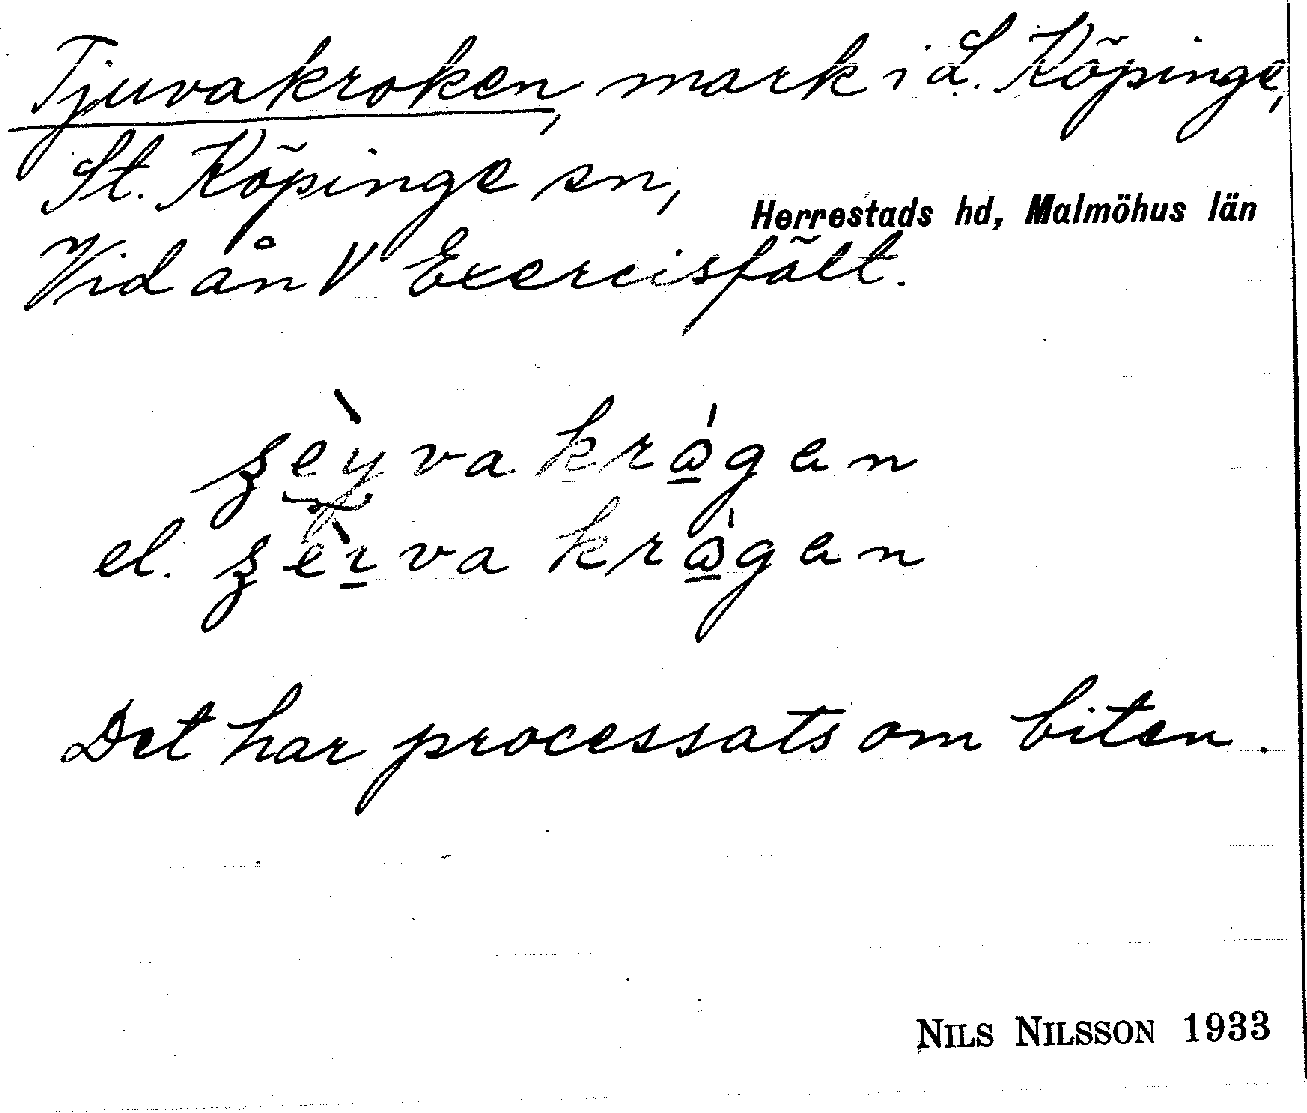 Tjuvakroken, mark i L. Köpinge,
St. Köpinge sn,
Herrestads hd, Malmöhus län
Vid ån V Exercisfält.
el.
Det har processats om biten.
NILS NILSSON 1933